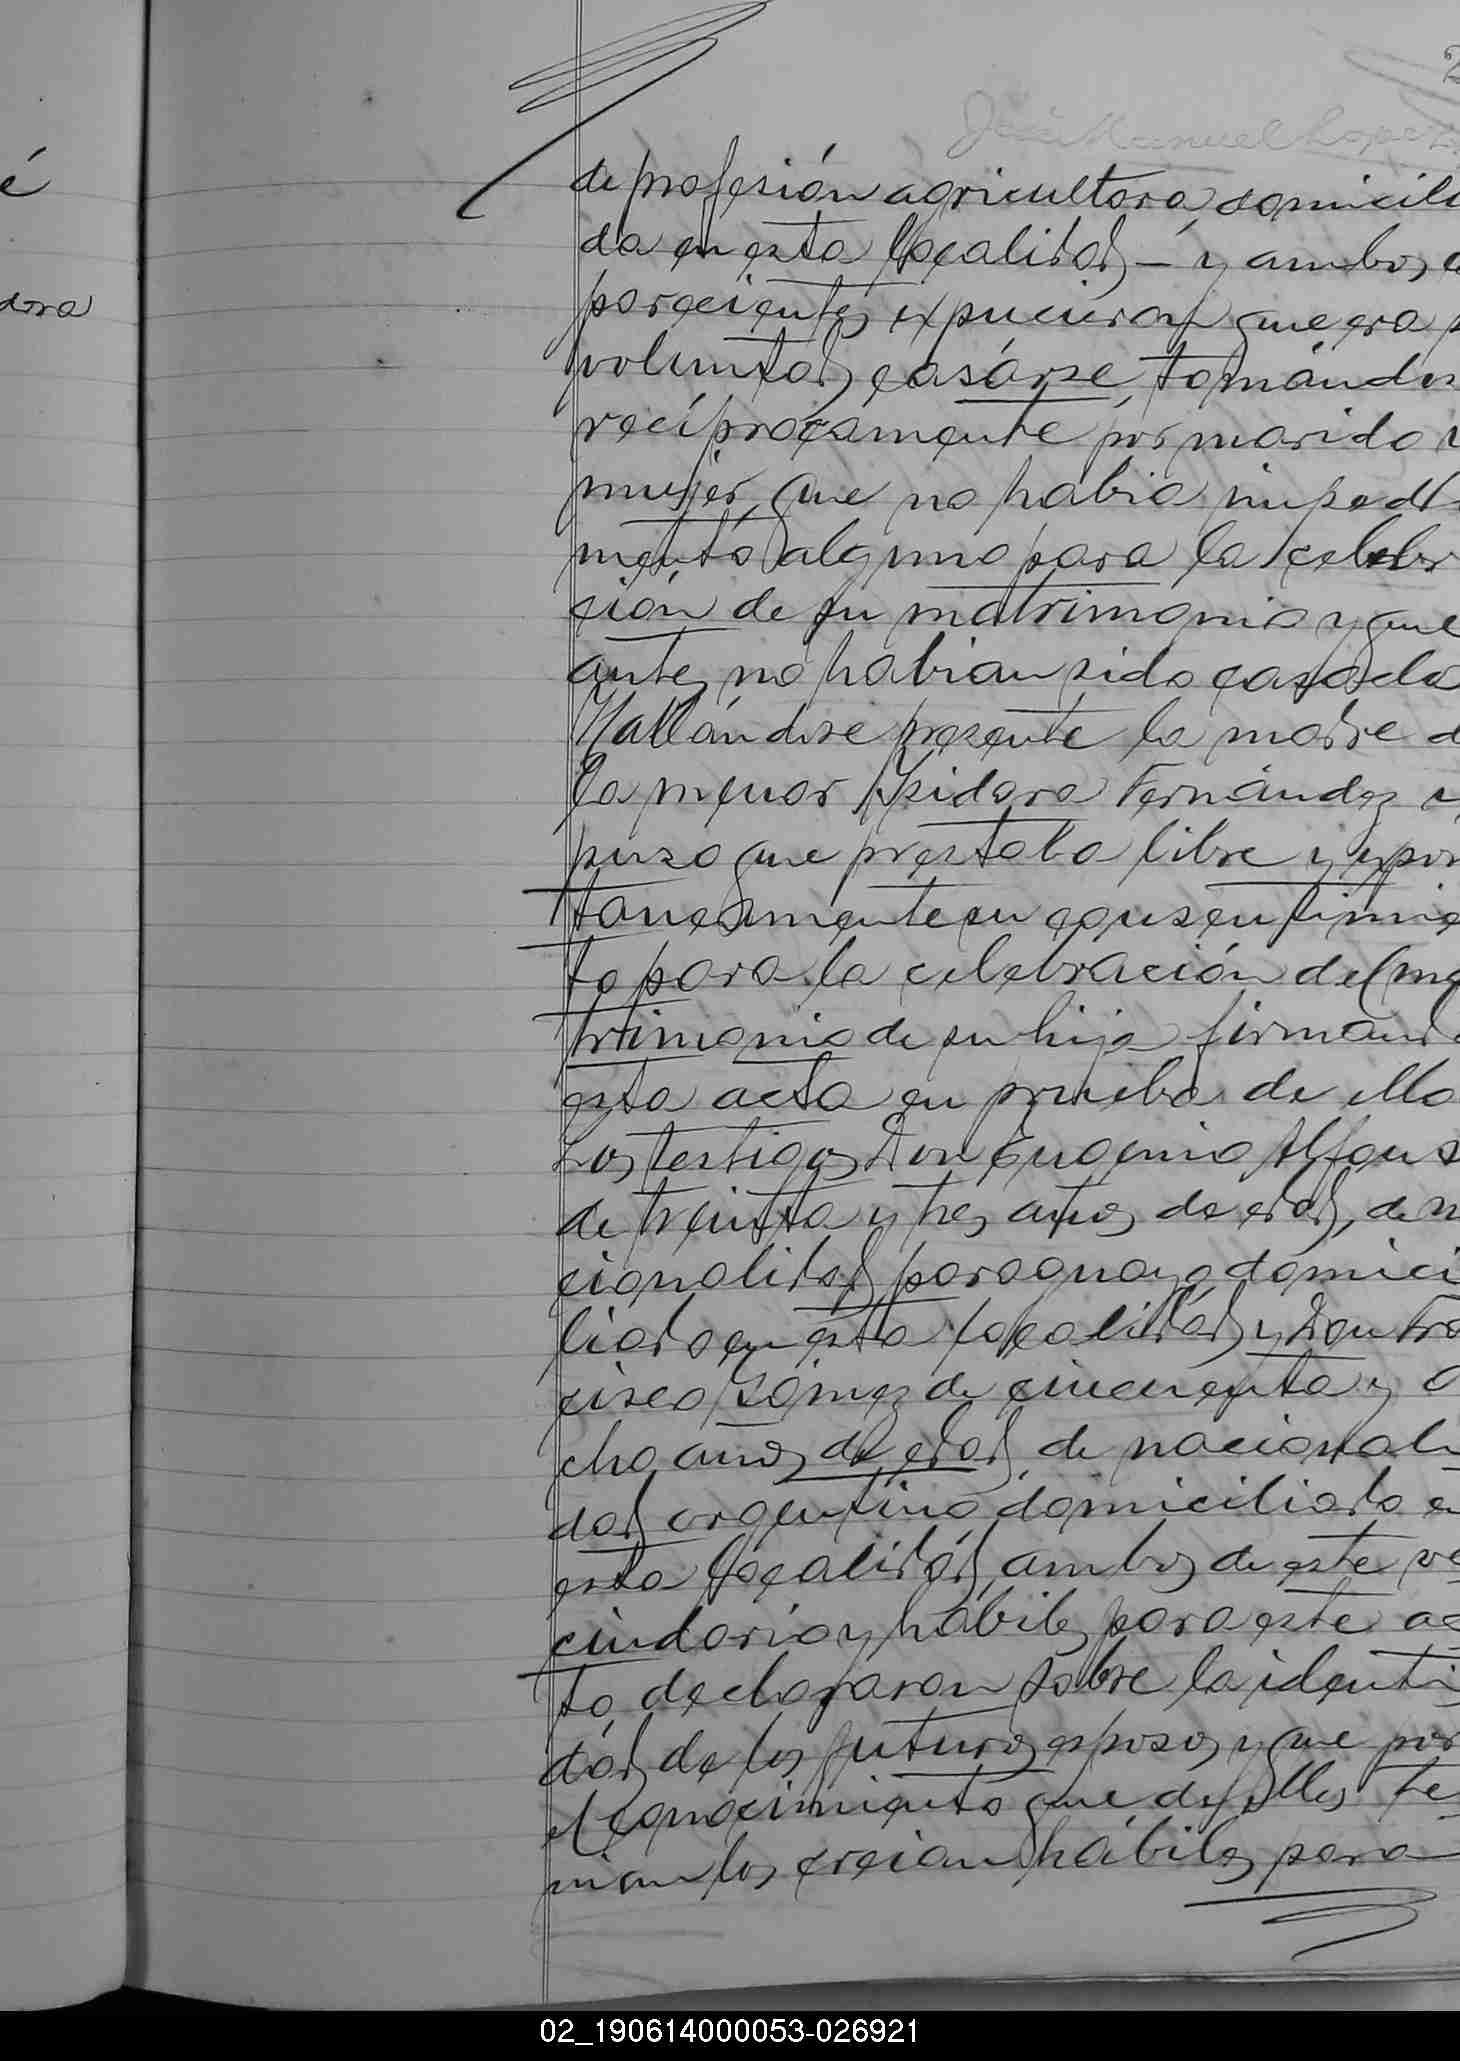 é
dora
José Manuel Lopez
de profesión agricultora, domicili
da en esta localidad, – y ambos co
parecientes expucieron que era s
voluntad casárse, tomándos
recíprocamente por marido y
mujer, que no habia impedi
mento alguno para la celebr
ción de su matrimonio y que
antes no habian sido casado
Hallándose presente la madre d
la menor Isidora Fernández y
puso que prestaba libre y expon
taneamente su consentimie
to para la celebración del ma
trimonio de su hija firmand
esta acta en prueba de ello
Los testigos Don Eugenio Alfons
de treinta y tres años de edad, de n
cionalidad paraguayo domici
liado en esta localidad y Don Fra
cisco Gómez de cincuenta y o
cho años de edad, de nacionali
dad argentino domiciliado en
esta localidad, ambos de este ve
cindario y hábiles para este ac
to declararon sobre la identi
dad de los futuros esposos y que por
el conocimiento que de ellos te
nian los creian hábiles para
02_190614000053-026921